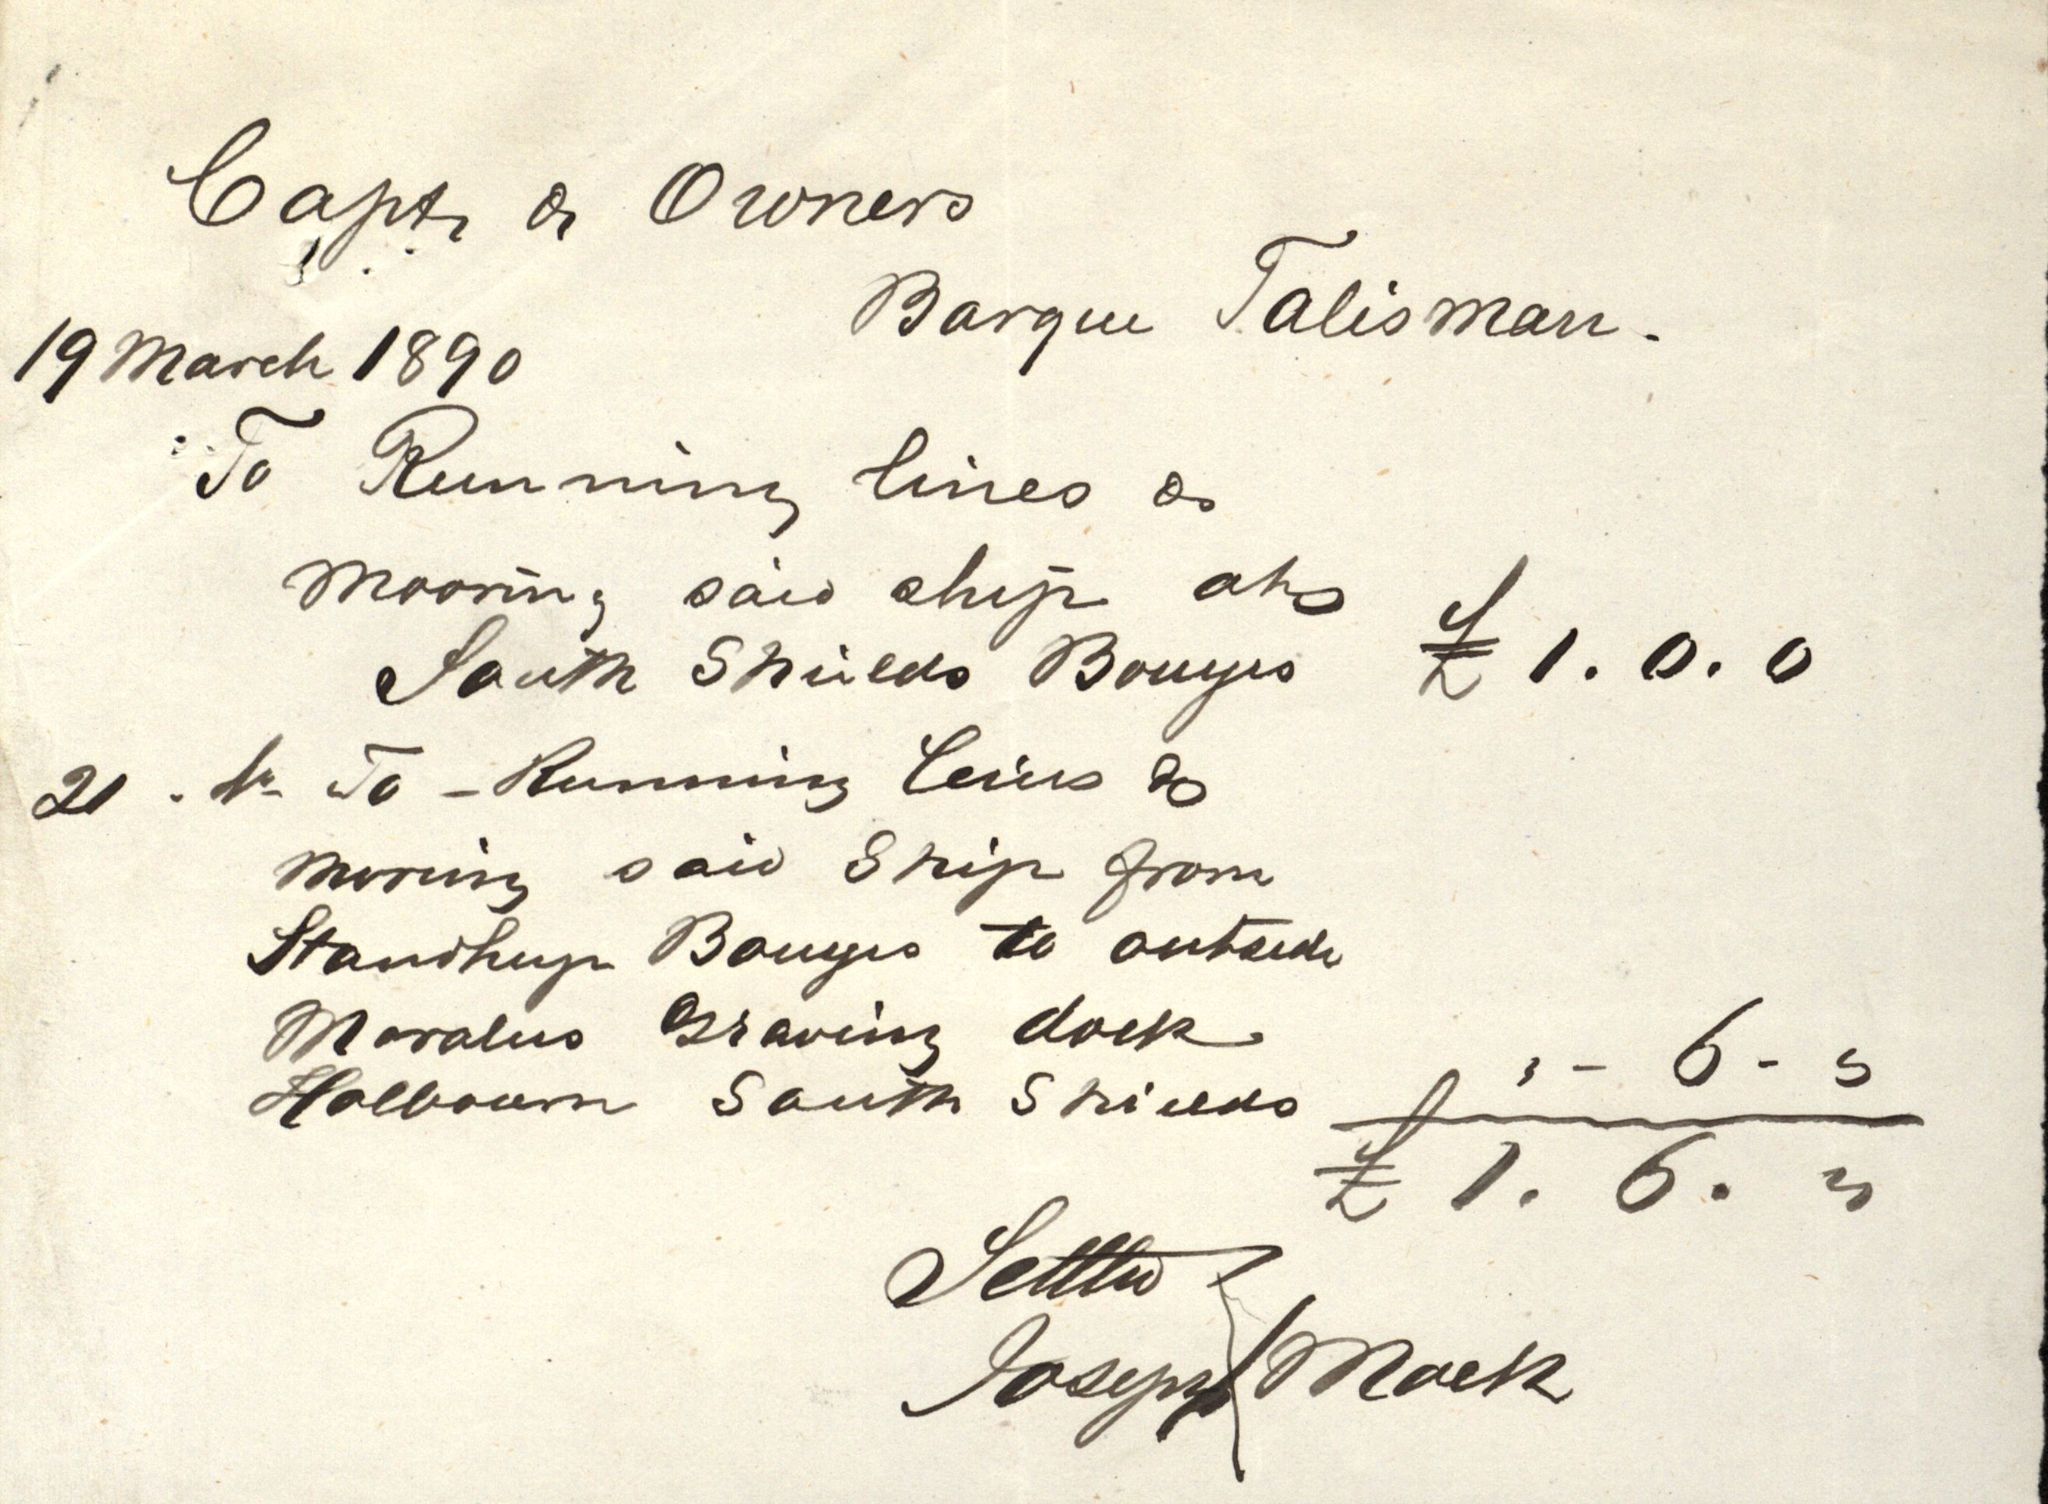 Capt & Owners
Barque Talisman.
19 March 1890
To Running lines &
Mooring said ship at
South Shields Bouyes £ 1. 0. 0
21 . To - Running Leines &
moving said Ship from
Bouyes to outside
Graving dock
Holbourn South Shields - 6 -
£ 1. 6.
Settled
Joseph Mack